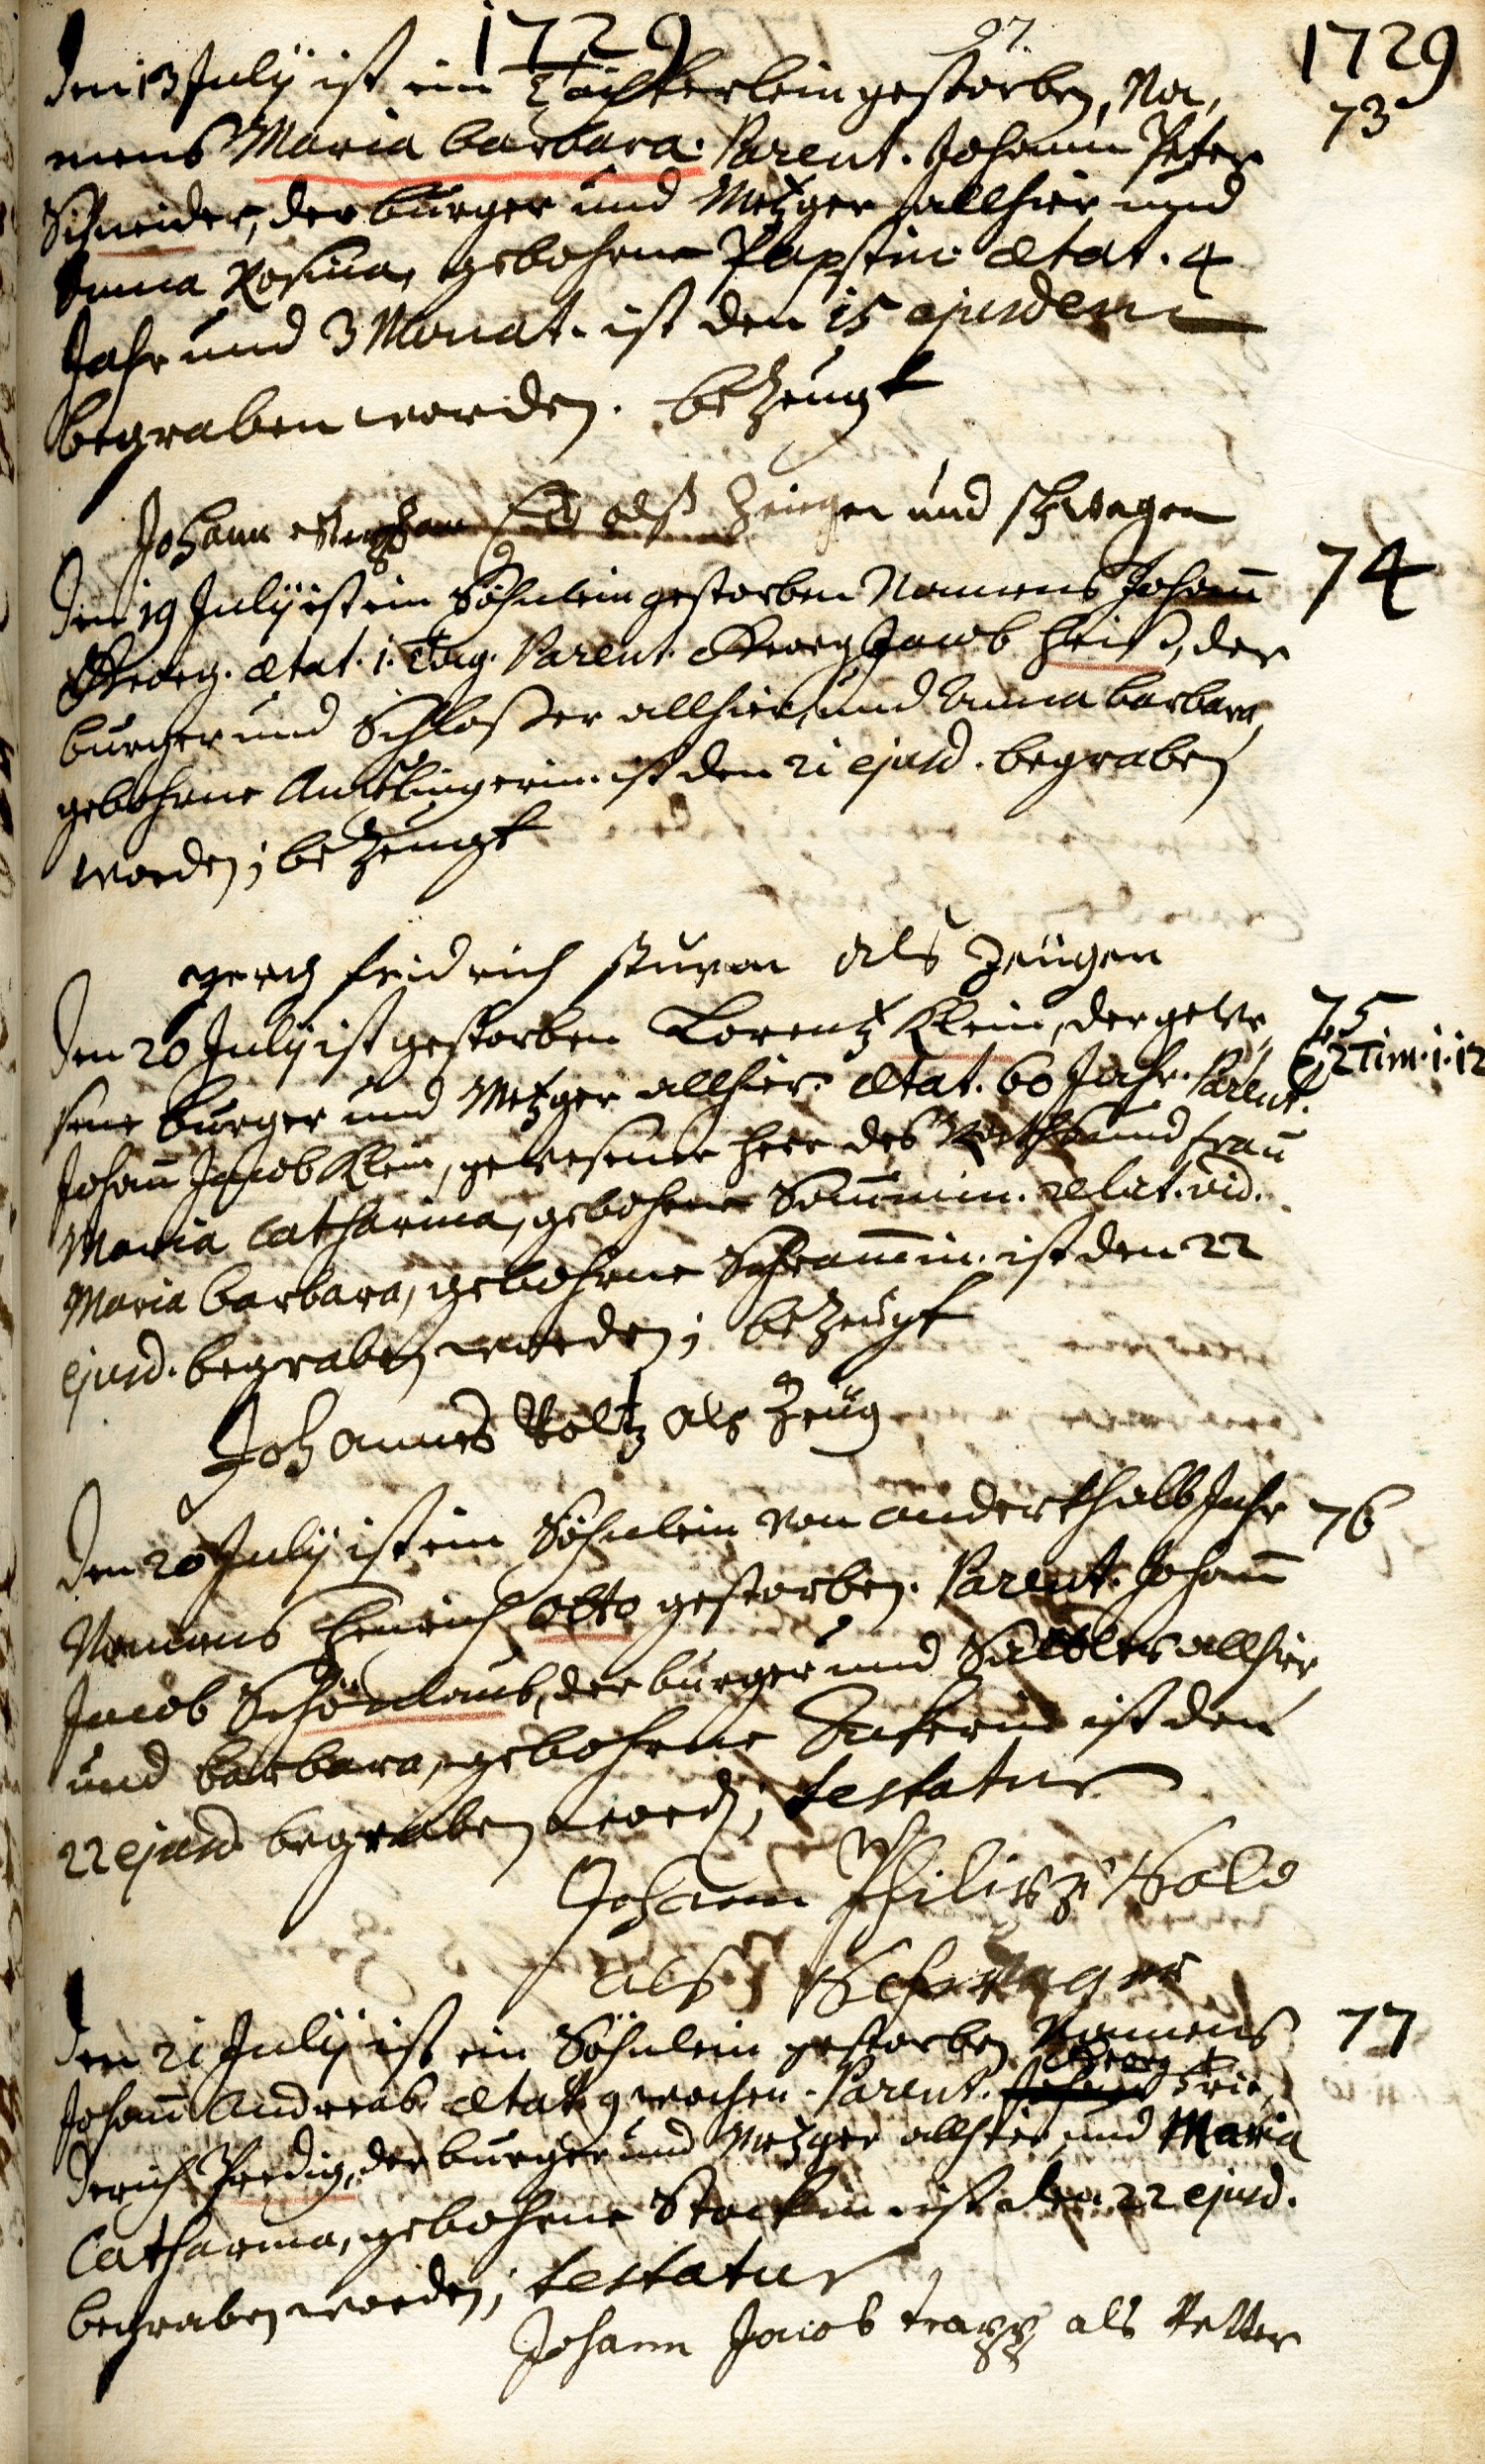 1729 97. 1729
Den 13 Julÿ ist ein Töchterlein gestorben, Na, 73
mens Maria Barbara. Parent. Johann Peter
Schneider, der burger und Metzger allhier und
Anna Rosina, gebohrne Papstin. ætat. 4
Jahr und 3 Monat. ist den 15 ejusdem
begraben worden. bezeugt
Johann als Zeugen und schwager
Den 19 Julÿ ist ein Söhnlein gestorben Namens Johañ 74
Georg. ætat. 1. Tag. Parent. Georg Jacob Heiß, der
burger und Schloßer allhier, und Anna Barbara,
gebohrne ist den 21 ejusd. begraben
worden; bezeugt
fridrich sturm als zeugen
Den 20 Julÿ ist gestorben Lorentz Klein, der gewe, 75
sene burger und Metzger allhier. ætat. 60 Jahr. Parent. 2 Tim. 1. 12
Johañ Jacob Klein, gewesener Herr des Raths und frau
Maria Catharina, gebohrne relict. vid.
Maria Barbara, gebohrne Schram̃in. ist den 22
ejusd. begraben worden; bezeugt
Johannes Voltz als Zeug
Den 20 Julÿ ist ein Söhnlein von anderthalb Jahr 76
Namens Henrich Otto gestorben. Parent. Johañ
Jacob Schönlaub, der burger und Sattler allhier,
und Barbara, gebohrne ist den
22 ejusd. begraben word; testatur
Johann Philipp
als Schwager
Den 21 Julÿ ist ein Söhnlein gestorben Namens 77
Georg
Johañ Andreas. ætat. 9 wochen. Parent. Frie,
derich Predig, der burger und Metzger allhier, und Maria
Catharina, gebohrne Stockin ist den 22 ejusd.
begraben worden; testatur
Johann Jacob trapp als Vetter